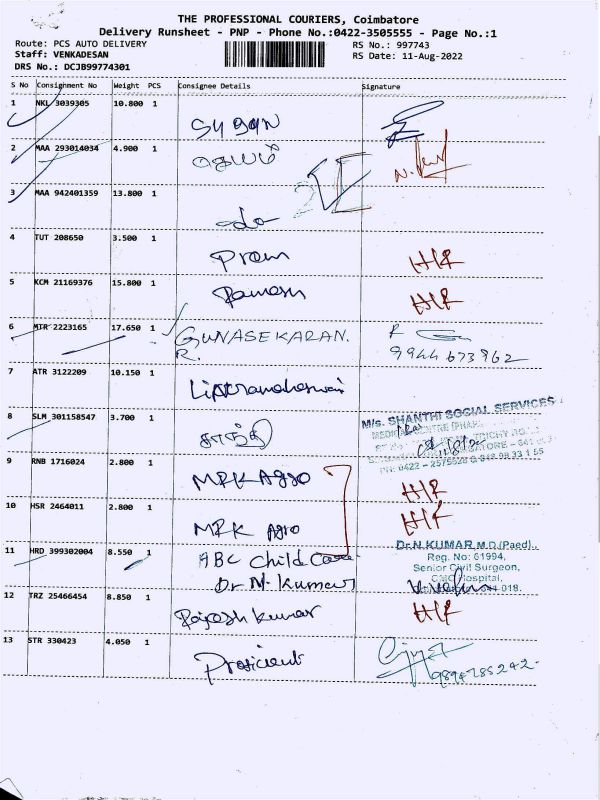 THE PROFESSIONAL COURIERS, Coimbatore
Delivery Runsheet - PNP - Phone No.:0422-3505555 - Page No.:1
Route: PCS AUTO DELIVERY
RS No.: 997743
Staff: VENKADESAN
RS Date: 11-Aug-2022
DRS No.: DCJB99774301
S No Consignment No Weight PCS Consignee Details Signature
1 NKL 3039305 10.800 1
2 MAA 293014034 4.900 1
3 MAA 942401359 13.800 1
do
4 TUT 208650 3.500 1
Prem H/R
5 KCM 21169376 15.800 1
Ramesh H/R
6 MTR 2223165 17.650 1
GUNASEKARAN.
R.
9944673962
7 ATR 3122209 10.150 1
8 SLM 301158547 3.700 1
சாந்தி
M/s. SHANTHI SOCIAL SERVICES
9 RNB 1716024 2.800 1
MRK Agro H/R
10 HSR 2464011 2.800 1
MRK Agro H/R
11 HRD 399302004 8.550 1
ABC Child Care
Dr N. Kumar
Dr.N.KUMAR M.D.(Paed).,
Reg. No: 61994,
Senior Civil Surgeon,
CMC Hospital,
12 TRZ 25466454 8.850 1
Rajesh kumar H/R
13 STR 330423 4.050 1
9894785242